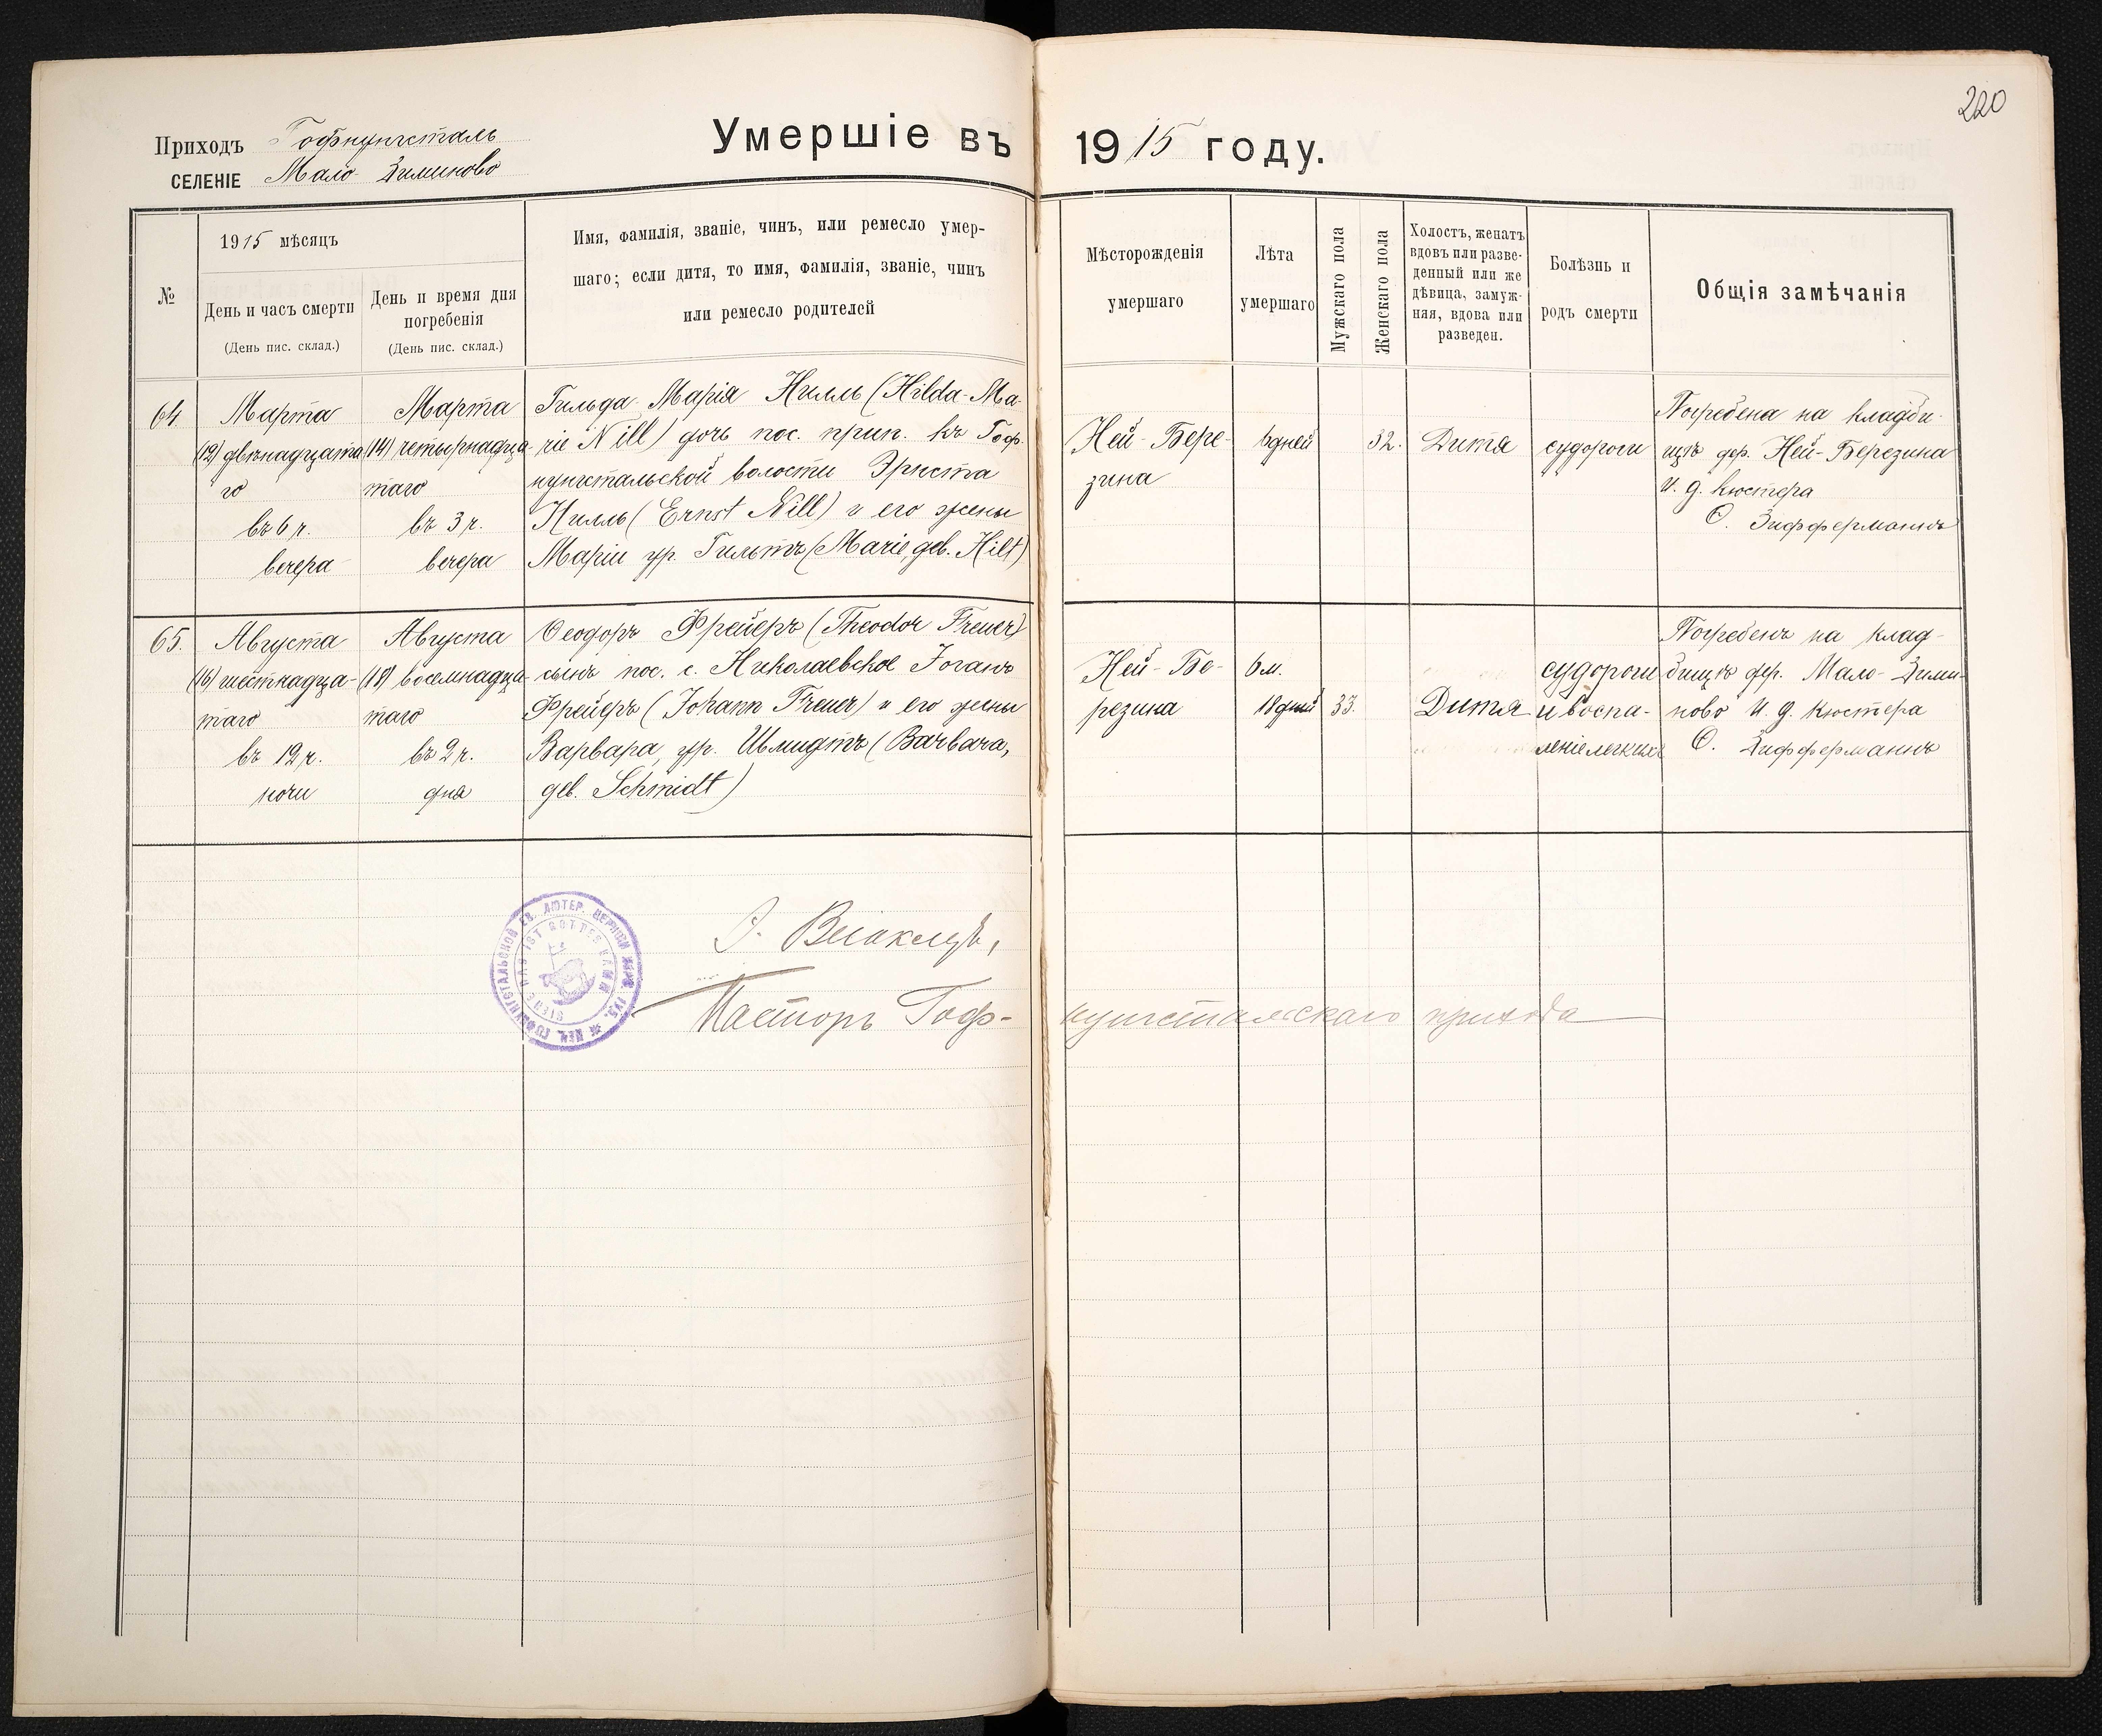 220
Приходъ Гофнунгсталь
СЕЛЕНІЕ Мало Зиминово
Умершіе въ 1915 году.
№
1915 мѣсяцъ
День и часъ смерти
(День пис. склад.)
День и время дня
погребенія
(День пис. склад.)
Имя, фамилія, званіе, чинъ, или ремесло умер-
шаго; если дитя, то имя, фамилія, званіе, чинъ
или ремесло родителей
Мѣсторожденія
умершаго
Лѣта
умершаго
Мужскаго пола
Женскаго пола
Холостъ, женатъ
вдовъ или разве-
денный или же
дѣвица, замуж-
няя, вдова или
разведен.
Болѣзнь и
родъ смерти
Общія замѣчанія
64
Марта
(12) двѣнадцата
го
въ 6 ч.
вечера
Марта
(14) четырнадца-
таго
въ 3 ч.
вечера
Гильда Марія Нилль (Hilda-Ma-
rie Nill) дочь пос. прип. къ Гоф-
нунгстальской волости Эрнста
Нилль (Ernst Nill) и его жены
Маріи ур. Гильтъ (Marie, geb. Hilt)
Ней-Бере-
зина
6 дней
32.
Дитя
судороги
Погребена на кладби-
щѣ дер. Ней-Березина
И. д. кюстера
О. Зиффермання
65.
Августа
(16) шестнадца-
таго
въ 12 ч.
ночи
Августа
(18) восемнадца-
таго
въ 2 ч.
дня
Ѳеодоръ Фрейеръ (Theodor Freuer)
сынъ пос. с. Николаевское Іоганъ
Фрейеръ (Johann Freuer) и его жены
Варвара, ур. Шмидтъ (Barbara,
geb. Schmidt)
Ней-Бе-
резина
6 м.
18 дней
33.
Дитя
судороги
и воспа-
леніе легкихъ
Погребенъ на клад-
бищѣ дер. Мало-Зими-
ново И. д. кюстера
О. Зифферманнъ
Пасторъ Гоф-нунгстальскаго прихода